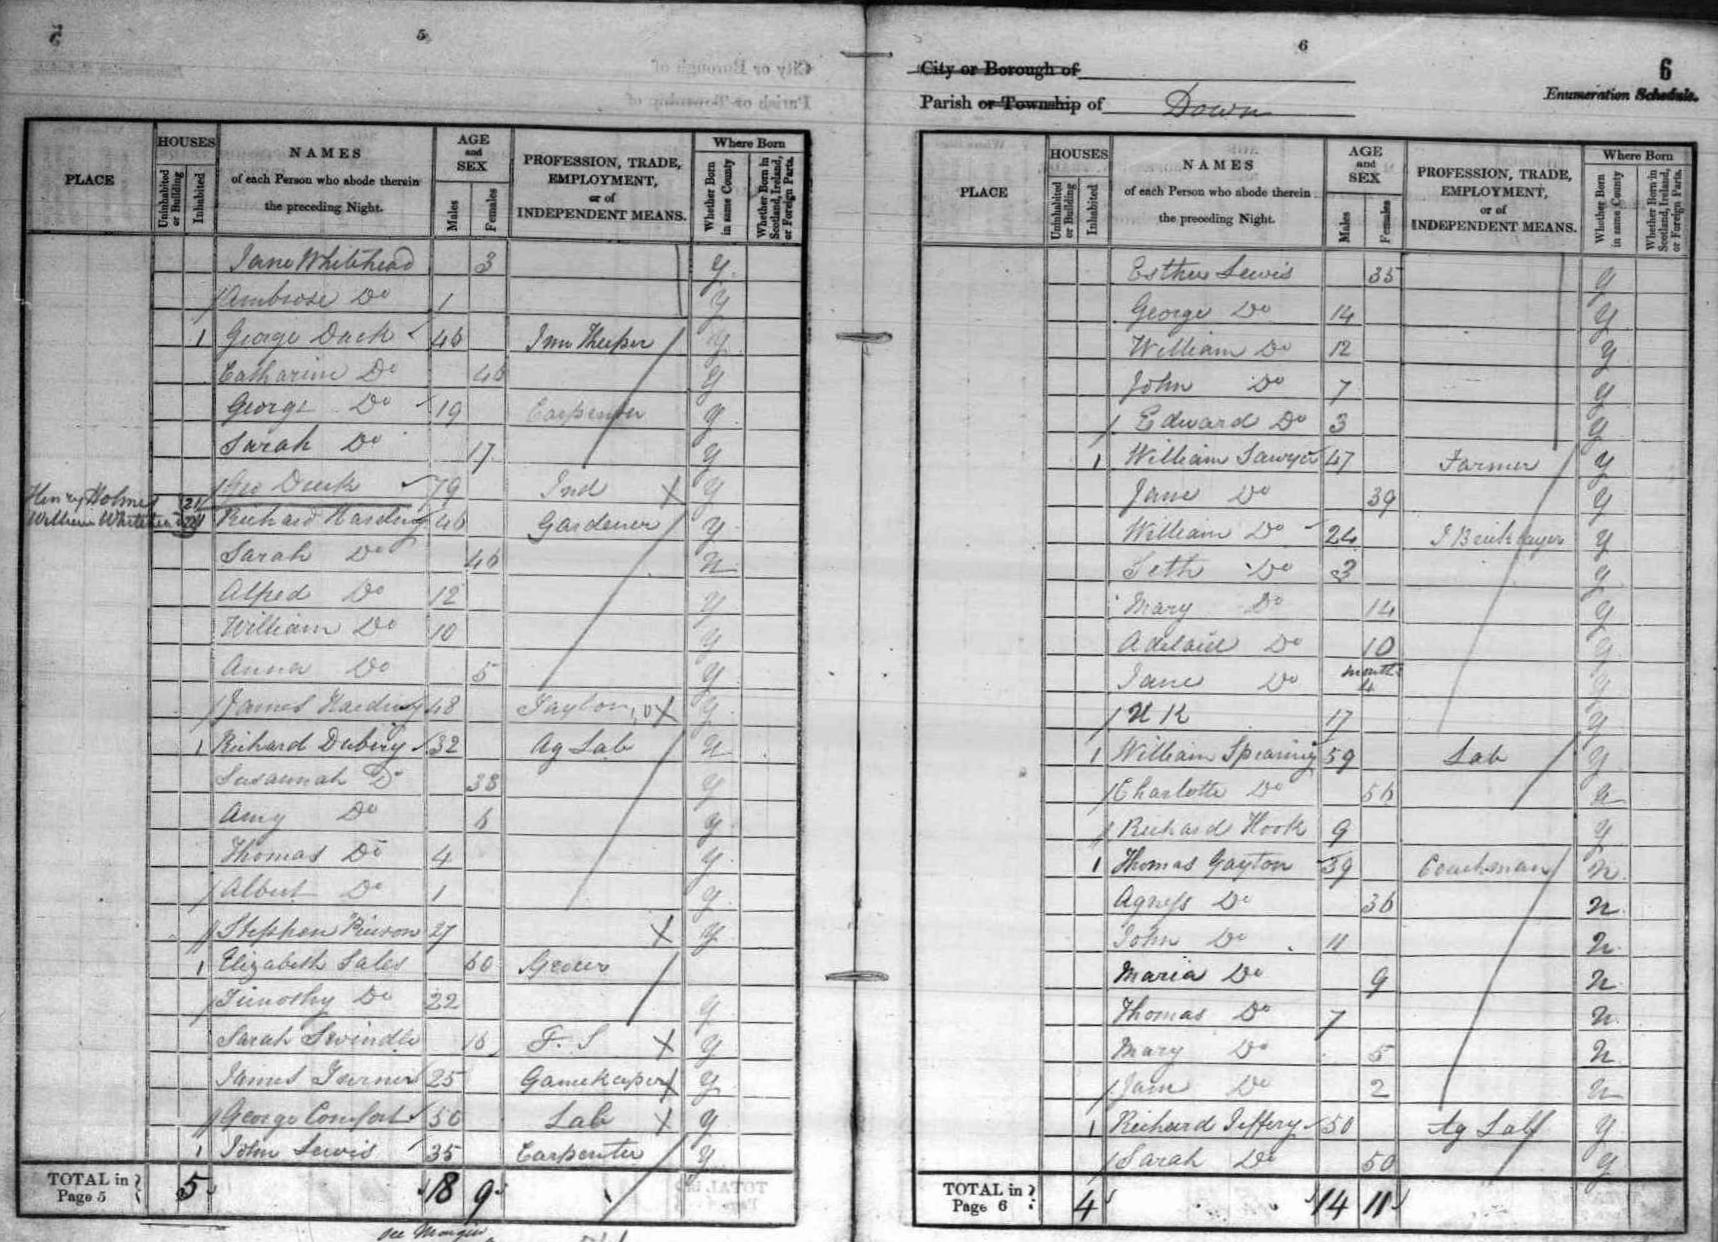 5
HOUSES
AGE and SEX
Where Born
PLACE
Uninhabited or Building
Inhabited
NAMES of each Person who abode therein the preceding Night.
Males
Females
PROFESSION, TRADE, EMPLOYMENT, or of INDEPENDENT MEANS.
Whether Born in same County
Whether Born in Scotland, Ireland, or Foreign Parts.
Jane Whitehead 3 y
Ambrose Do 1 y
1 George Duck 46 Inn Keeper y
Catharine Do 46 y
George Do 19 Carpenter y
Sarah Do 17 y
Geo Duck 79 Ind X y
Henry Holmes 21
William Whitehead
Richard Harding 46 Gardener y
Sarah Do 46 n
Alfred Do 12 y
William Do 10 y
Anna Do 5 y
James Harding 48 X y
1 Richard 32 Ag Lab n
Susannah Do 38 y
Amy Do 6 y
Thomas Do 4 y
Albert Do 1 y
Stephen 27 X y
1 Elizabeth Sales 60 Grocer
Timothy Do 22 y
Sarah Swindle 16 F. S X y
James Turner 25 Gamekeeper X y
George Comfort 50 Lab X y
1 John Lewis 35 Carpenter y
TOTAL in Page 5 5 18 9
see Margin
6
6
City or Borough of
Parish or Township of Down
Enumeration Schedule.
HOUSES
AGE and SEX
Where Born
PLACE
Uninhabited or Building
Inhabited
NAMES of each Person who abode therein the preceding Night.
Males
Females
PROFESSION, TRADE, EMPLOYMENT, or of INDEPENDENT MEANS.
Whether Born in same County
Whether Born in Scotland, Ireland, or Foreign Parts.
Esther Lewis 35 y
George Do 14 y
William Do 12 y
John Do 7 y
Edward Do 3 y
1 William Sawyer 47 Farmer y
Jane Do 39 y
William Do 24 J Bricklayer y
Seth Do 3 y
Mary Do 14 y
Adelaid Do 10 y
Jane Do months 4 y
N K 17 y
1 William Spearing 59 Lab y
Charlotte Do 56 n
Richard Hook 9 y
1 Thomas Gayton 39 Coachman n
Agness Do 36 n
John Do 11 n
Maria Do 9 n
Thomas Do 7 n
Mary Do 5 n
Jane Do 2 n
1 Richard Jeffery 50 Ag Lab y
Sarah Do 50 y
TOTAL in Page 6 4 14 11